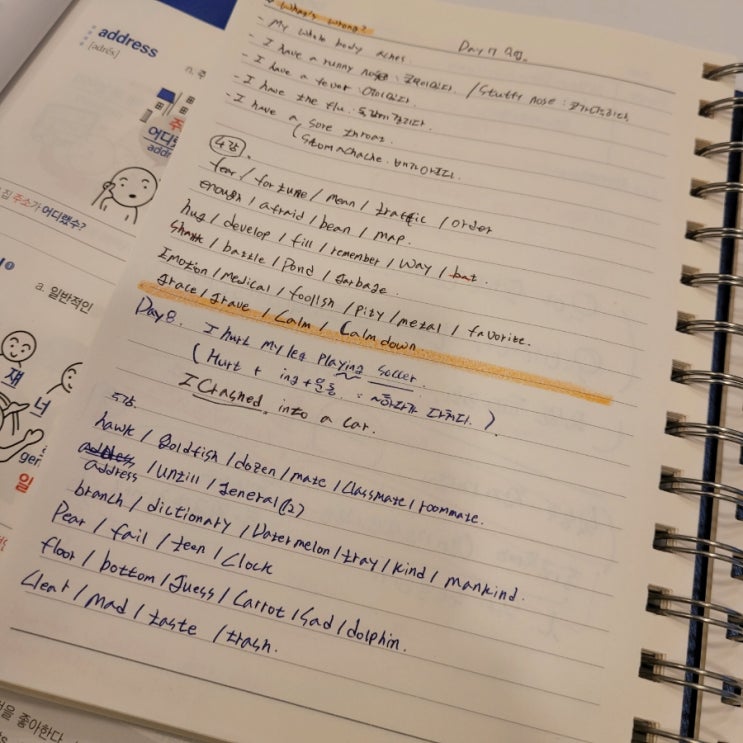 What's wrong?
Day 7 복습.
- My whole body aches.
- I have a runny nose : 콧물이있다. / Stuffy nose : 코가막히다.
- I have a fever : 열이있다.
- I have the flu. 독감에걸리다.
- I have a sore throat.
( Stomachache. 배가아프다.
4강.
fear / fortune / mean / traffic / order
enough / afraid / bean / map.
hug / develop / fill / remember / way / bat.
/ battle / pond / garbage.
Emotion / Medical / foolish / pity / metal / favorite.
grace / grave / Calm / Calm down
Day 8. I hurt my leg playing soccer.
( Hurt + ing + 운동 : ~하다가 다치다. )
I Crashed into a car.
5강.
hawk / goldfish / dozen / mate / Classmate / roommate.
address / untill / general (2)
branch / dictionary / Watermelon / tray / kind / mankind.
Pear / fail / teen / Clock
floor / bottom / guess / Carrot / Sad / dolphin.
Clear / mad / taste / trash.
address
[ədrés]
n. 주
주
어디
addr
집 주소가 어디랬수?
a. 일반적인
재 너
gen
일